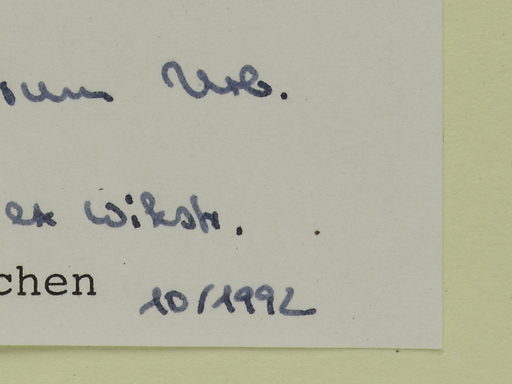 Urb.
ex Wikstr.
chen
10/1992